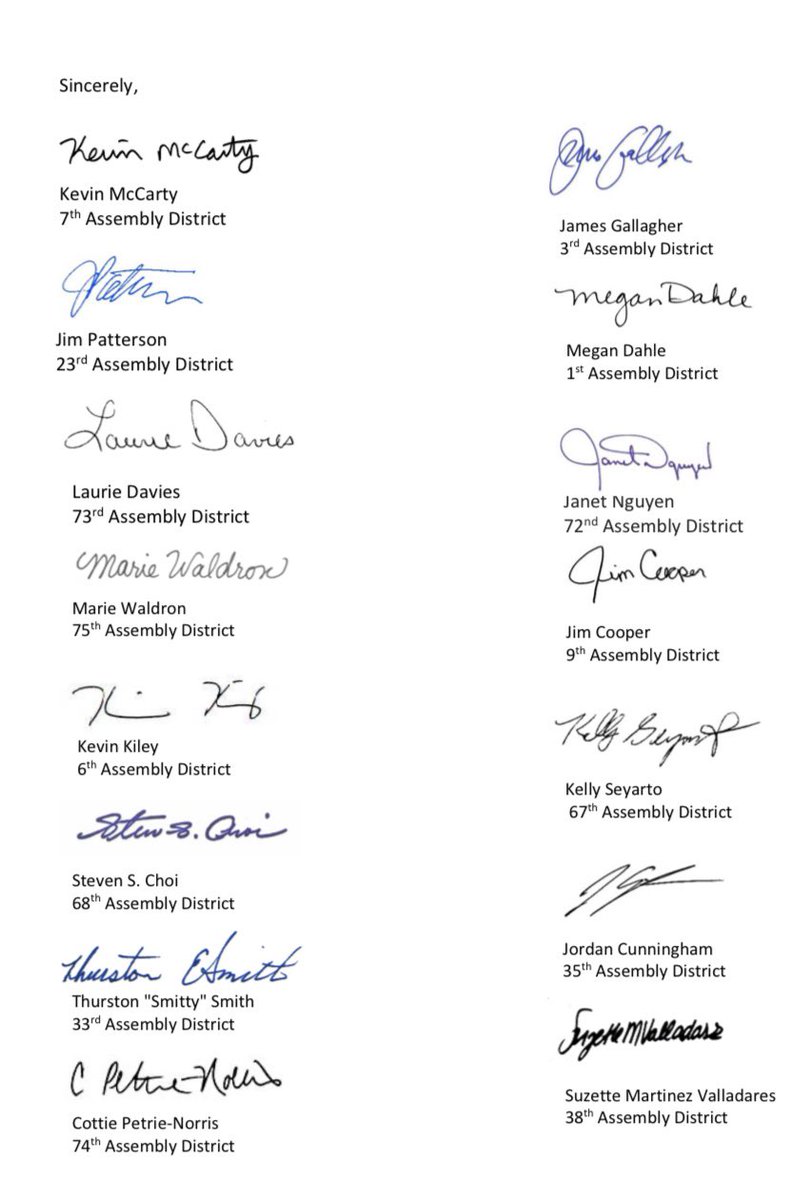 Sincerely,
Kevin McCarty
Kevin McCarty
7th Assembly District
Jim Patterson
23rd Assembly District
Laurie Davies
Laurie Davies
73rd Assembly District
Marie Waldron
Marie Waldron
75th Assembly District
Kevin Kiley
6th Assembly District
Steven S. Choi
Steven S. Choi
68th Assembly District
Thurston E Smith
Thurston "Smitty" Smith
33rd Assembly District
C Petrie-Norris
Cottie Petrie-Norris
74th Assembly District
James Gallagher
3rd Assembly District
Megan Dahle
Megan Dahle
1st Assembly District
Janet Nguyen
Janet Nguyen
72nd Assembly District
Jim Cooper
Jim Cooper
9th Assembly District
Kelly Seyarto
Kelly Seyarto
67th Assembly District
Jordan Cunningham
35th Assembly District
Suzette M Valladares
Suzette Martinez Valladares
38th Assembly District